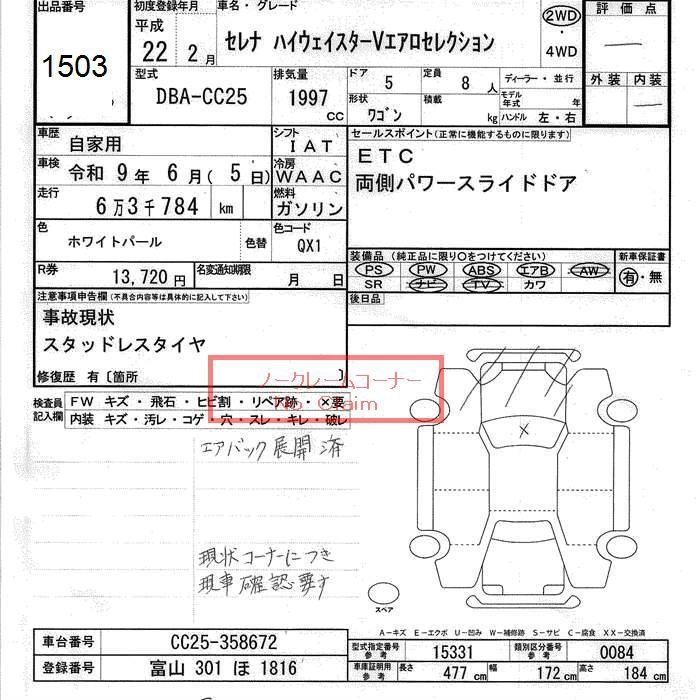 出品番号
1503
初度登録年月
平成
22 2 月
車名・グレード
セレナ ハイウェイスターVエアロセレクション
2WD
・
4WD
評価点
外装 内装
型式
DBA-CC25
排気量
1997
CC
ドア
5
定員
8 人
形状
ワゴン
積載
kg
ディーラー・並行
モデル年式 年
ハンドル 左・右
車歴
自家用
シフト
IAT
車検
令和 9 年 6 月( 5 日)
冷房
WAAC
走行
6万3千784 km
燃料
ガソリン
色
ホワイトパール
色替
色コード
QX1
R券
13,720 円
名変通知期限
月 日
セールスポイント(正常に機能するものに限ります)
ETC
両側パワースライドドア
装備品(純正品に限り○をつけてください)
PS PW ABS エアB AW
SR ナビ TV カワ
新車保証書
有・無
後日品
注意事項申告欄(不具合内容等は具体的に記入して下さい)
事故現状
スタッドレスタイヤ
修復歴 有〔箇所 〕
ノークレームコーナー
No Claim
検査員記入欄
FW キズ・飛石・ヒビ割・リペア跡・×要
内装 キズ・汚レ・コゲ・穴・スレ・キレ・破レ
エアバック展開済
現状コーナーにつき
現車確認要す
スペア
A-キズ E-エクボ U-凹み W-補修跡 S-サビ C-腐食 XX-交換済
車台番号
CC25-358672
登録番号
富山 301 ほ 1816
型式指定番号
参考
15331
類別区分番号
参考
0084
車庫証明用
参考
長さ
477 cm
幅
172 cm
高さ
184 cm